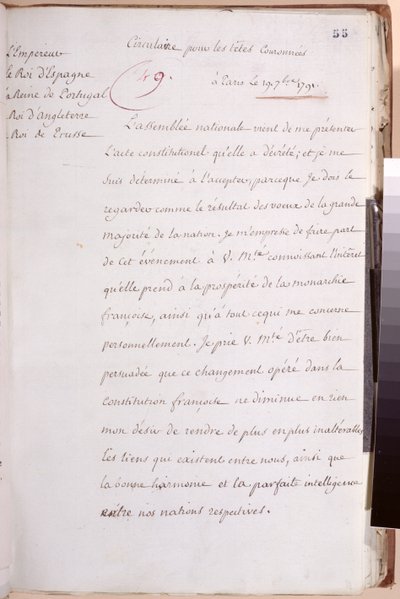 55
Circulaire pour les têtes Couronnées
L'Empereur
le Roi d'Espagne
la Reine de Portugal
Roi d'Angleterre
Roi de Prusse
9.
à Paris le 19. 7bre 1791.
L'assemblée nationale vient de me présenter
l'acte constitutionel qu'elle a décrété; et je me
suis determiné à l'accepter, parceque Je dois le
regarder comme le résultat des voeux de la grande
majorité de la nation. Je m'empresse de faire part
de cet événement à V. Mté connoissant l'intérêt
qu'elle prend à la prospérité de la monarchie
françoise, ainsi qu'à tout cequi me concerne
personnellement. Je prie V. Mté d'être bien
persuadée que ce changement opéré dans la
Constitution françoise ne diminue en rien
mon désir de rendre de plus enplus inaltérables
les liens qui existent entre nous, ainsi que
la bonne harmonie et la parfaite intelligence
entre nos nations respectives.